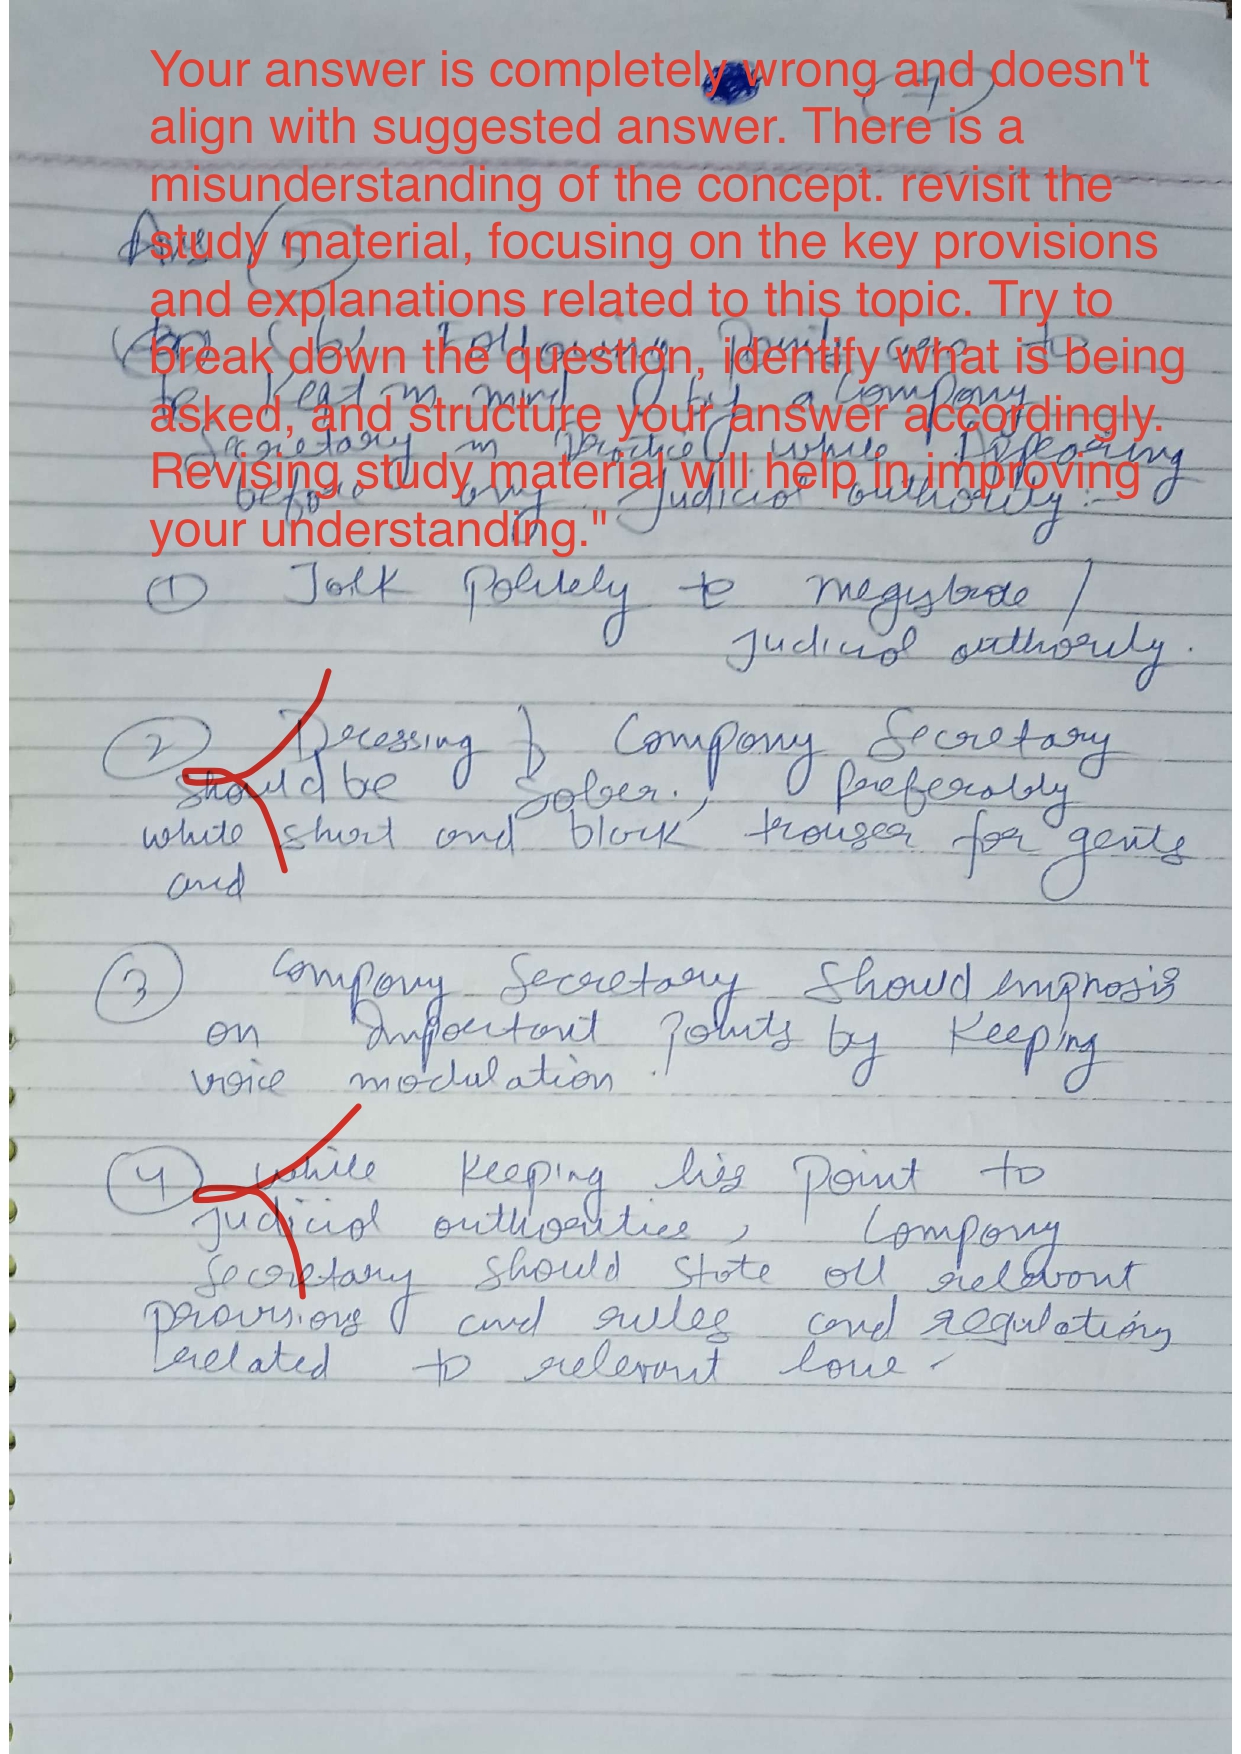 Your answer is completely wrong and doesn't
align with suggested answer. There is a
misunderstanding of the concept. revisit the
study material, focusing on the key provisions
and explanations related to this topic. Try to
break down the question, identify what is being
asked, and structure your answer accordingly.
Revising study material will help in improving
your understanding."
Ans (5)
(b) Following points are to
be kept in mind by a Company
Secretary in Practice while Appearing
before any Judicial authority :-
① Talk Politely to
Judicial authority.
② Dressing of Company Secretary
should be sober., Preferably
white shirt and black trouser for gents
and
③ Company Secretary Should
on Important Points by Keeping
voice modulation.
④ While Keeping his Point to
Judicial authorities, Company
Secretary should state all relevant
provisions and rules and regulations
related to relevant